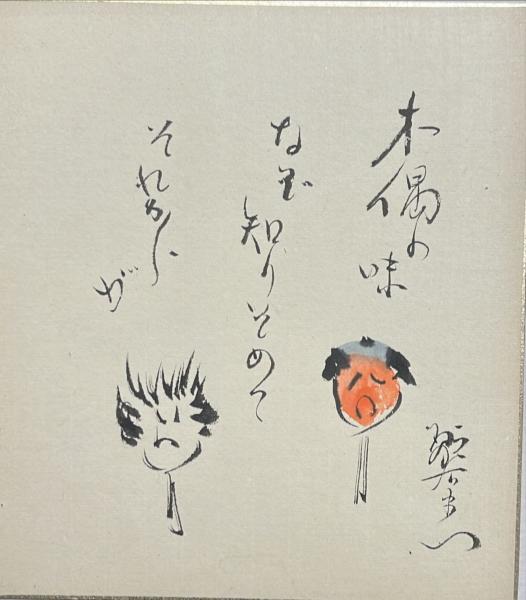 木偶の味
なぞ知りそめて
それからが